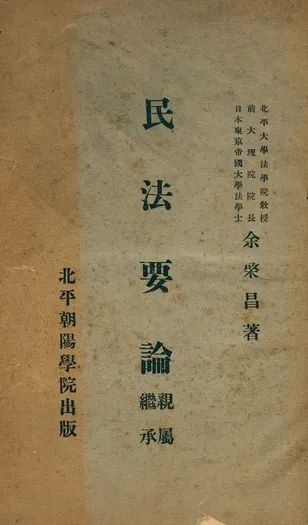 北平大學法學院教授
前大理院院長
日本東京帝國大學法學士
余棨昌著
民法要論
親屬
繼承
北平朝陽學院出版